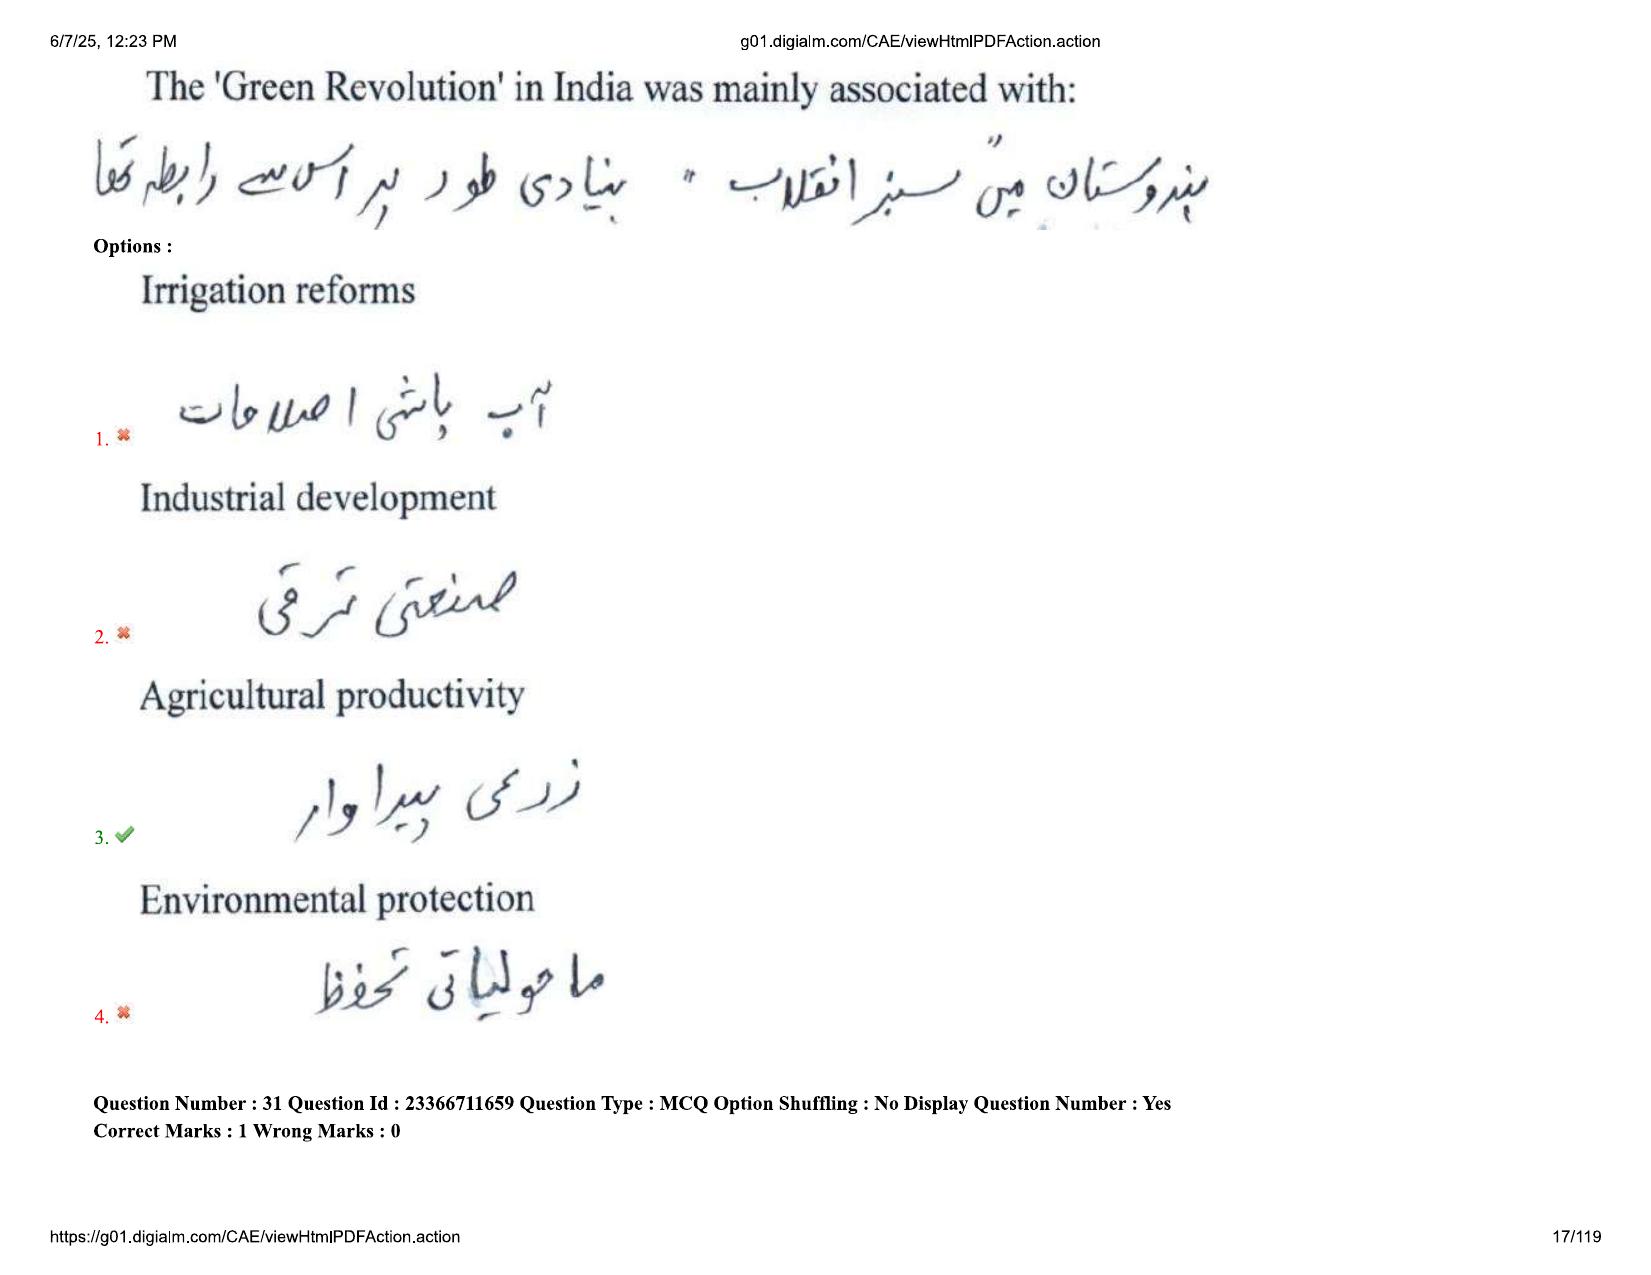 6/7/25, 12:23 PM
g01.digialm.com/CAE/viewHtmlPDFAction.action
The 'Green Revolution' in India was mainly associated with:
ہندوستان میں " سبز انقلاب " بنیادی طور پر اس سے رابطہ تھا
Options :
Irrigation reforms
آب پاشی اصلاحات
1.
Industrial development
صنعتی ترقی
2.
Agricultural productivity
زرعی پیداوار
3.
Environmental protection
ماحولیاتی تحفظ
4.
Question Number : 31 Question Id : 23366711659 Question Type : MCQ Option Shuffling : No Display Question Number : Yes
Correct Marks : 1 Wrong Marks : 0
https://g01.digialm.com/CAE/viewHtmlPDFAction.action
17/119